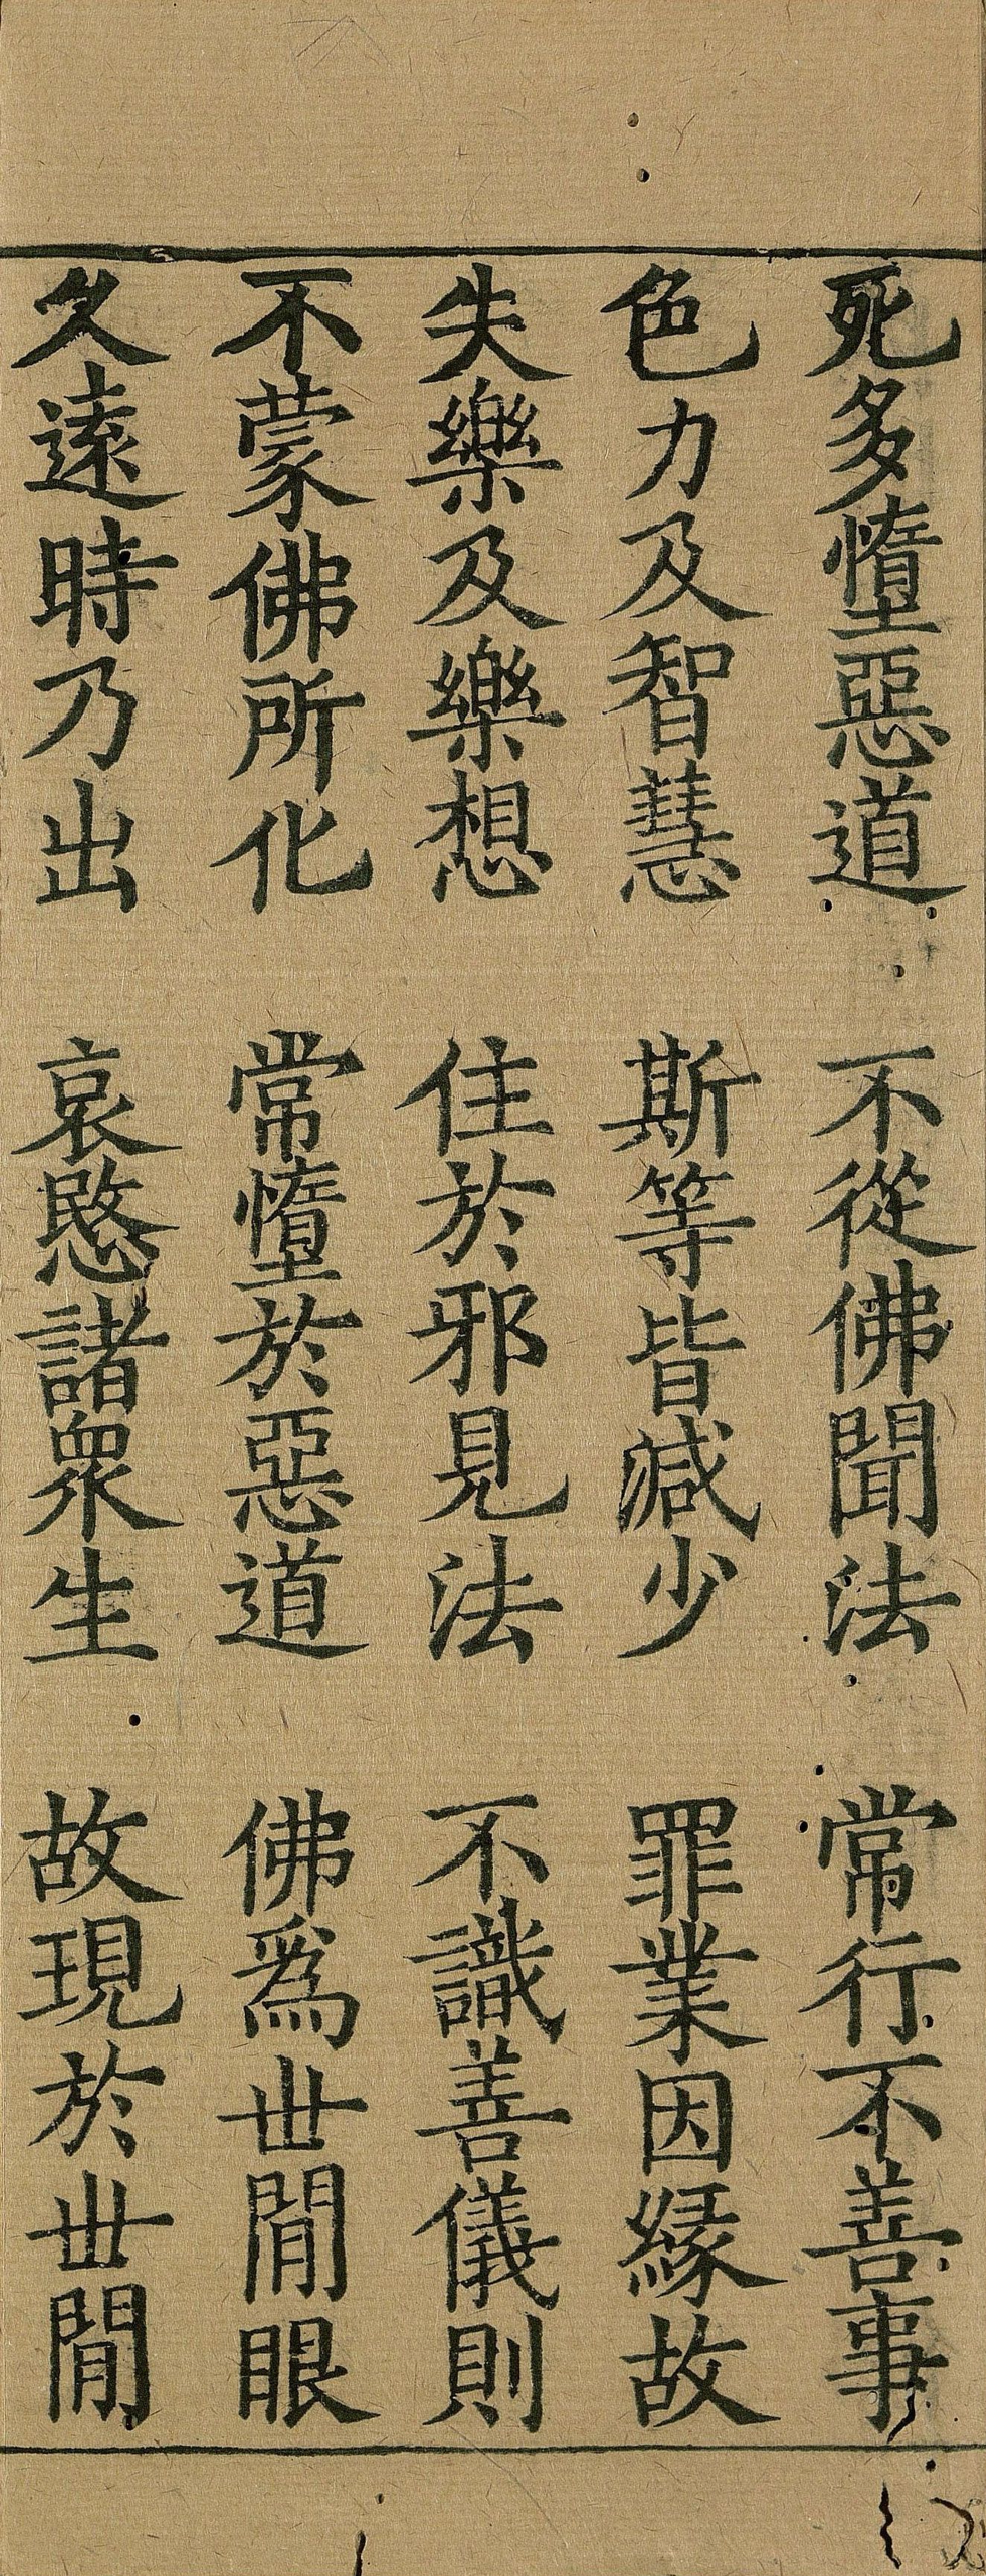 死多墯惡道　不從佛聞法　常行不善事
色力及智慧　斯等皆減少　罪業因緣故
失樂及樂想　住於邪見法　不識善儀則
不蒙佛所化　常墯於惡道　佛爲世閒眼
久遠時乃出　哀愍諸衆生　故現於世閒